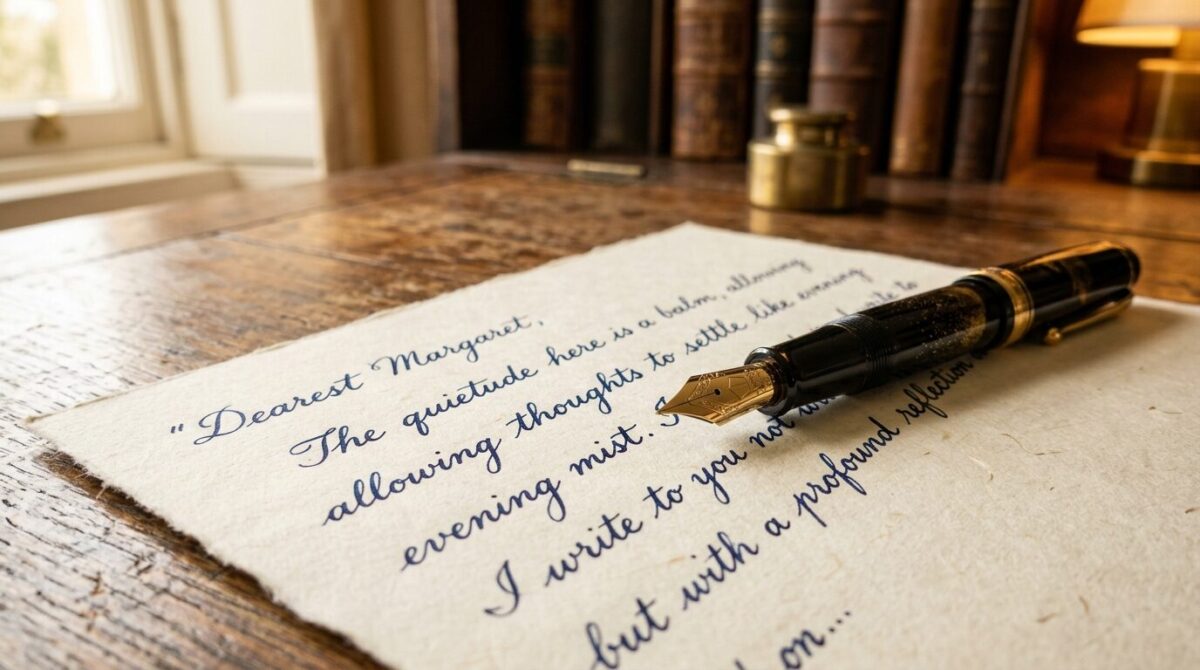 "Dearest Margaret,
The quietude here is a balm, allowing
allowing thoughts to settle like evening
evening mist. I to
I write to you not
but with a profound reflection
on...